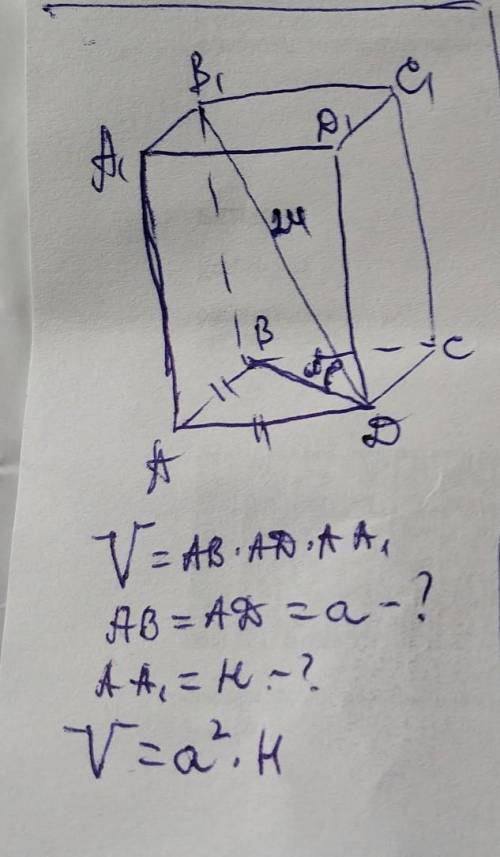 B₁
C₁
A₁
D₁
24
B
C
A
D
V = AB · AD · AA₁
AB = AD = a - ?
AA₁ = H - ?
V = a² · H